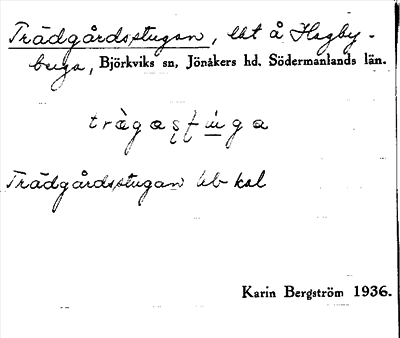 Trädgårdsstugan, lht å Hagby-
berga, Björkviks sn, Jönåkers hd. Södermanlands län.
Trädgårdsstugan lib kal
Karin Bergström 1936.